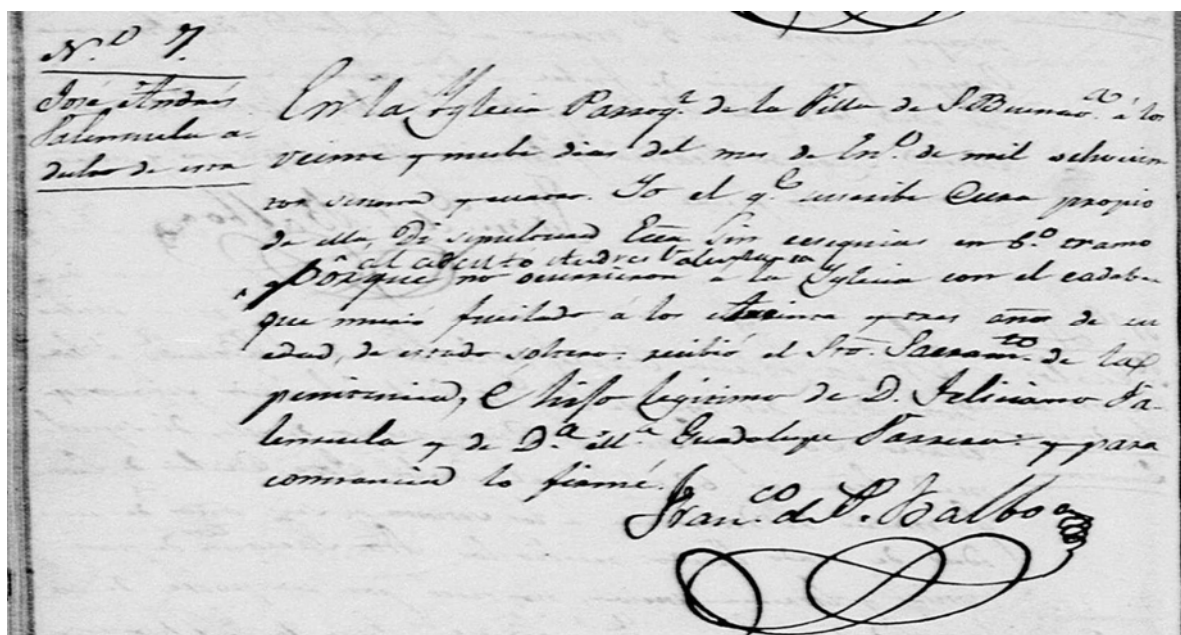 N.º 7.
José Andrés
Valenzuela a-
dulto de esta
En la Yglecia Parroq.l de la Villa de S. Buenav.a á los
veinte y nuebe dias del mes de En.º de mil ochocien
tos sesenta y cuatro. Yo el q.e suscribe Cura propio
de ella, Di sepultura Ecca sin exequias en 6.º tramo
al adulto Andres Valenzuela
porque no ocurrieron a la Yglecia con el cadabe
que murió fucilado á los treinta y tres años de su
edad, de estado soltero: recibió el Sto. Sacram.to de la
penitencia, é hijo legitimo de D. Feliciano Va-
lensuela y de D.a M.a Guadalupe y para
constancia lo firmé.
Fran.co de P. Balboa